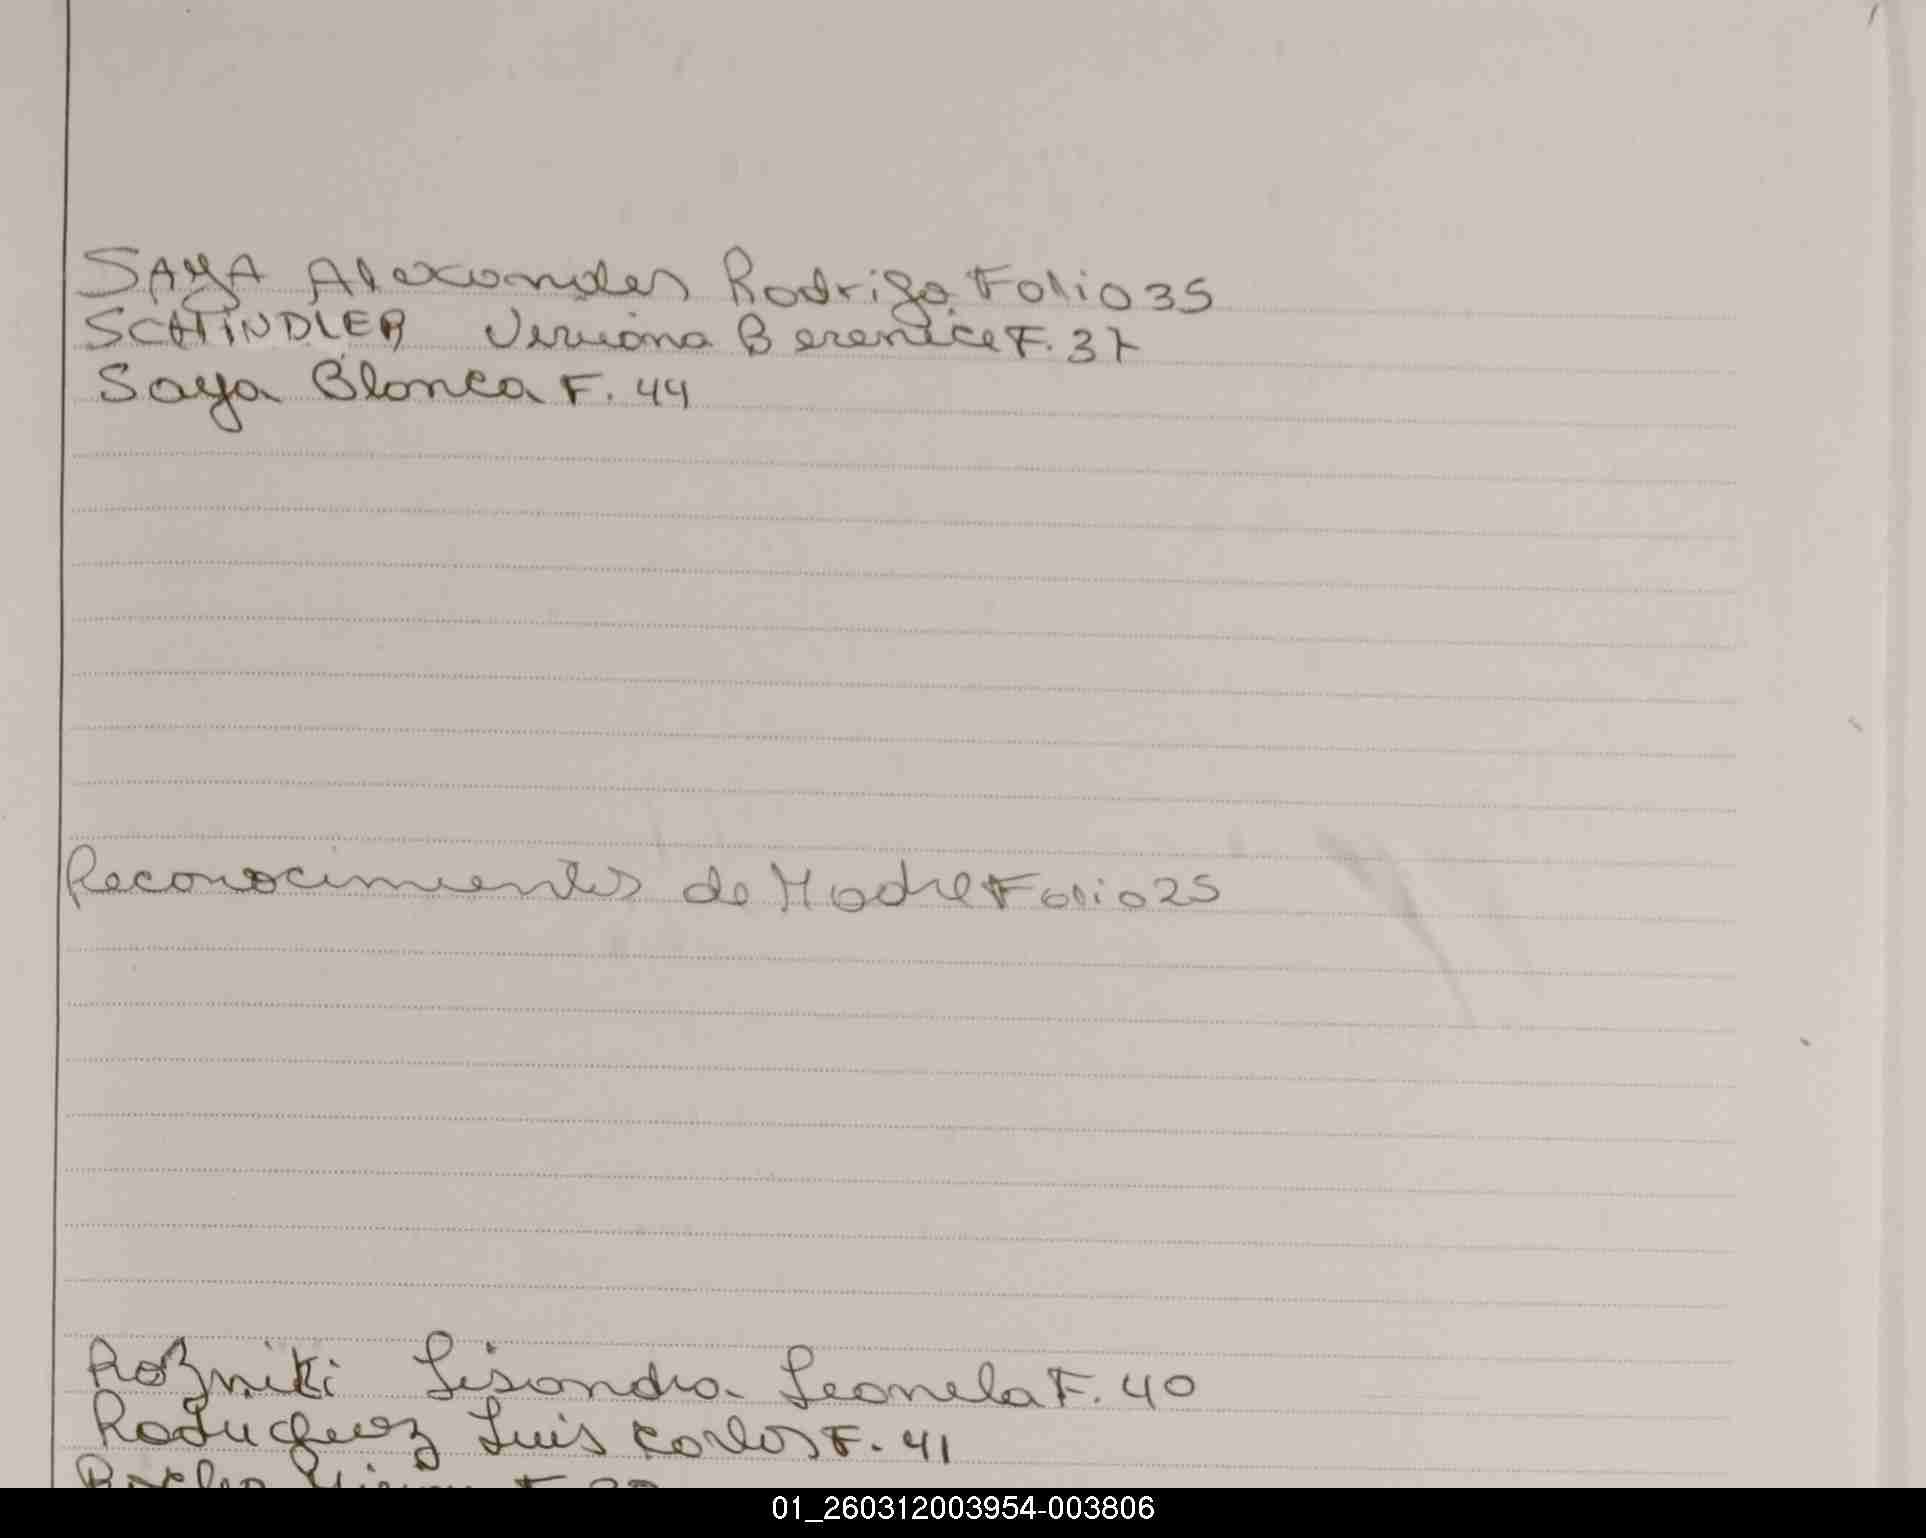 SAYA Alexander Rodrigo Folio 35
SCHINDLER Viviana Berenice F. 37
Saya Blanca F. 44
Reconocimientos de Madre Folio 25
Rozniki Lisandra Leonela F. 40
Rodriguez Luis Carlos F. 41
01_260312003954-003806